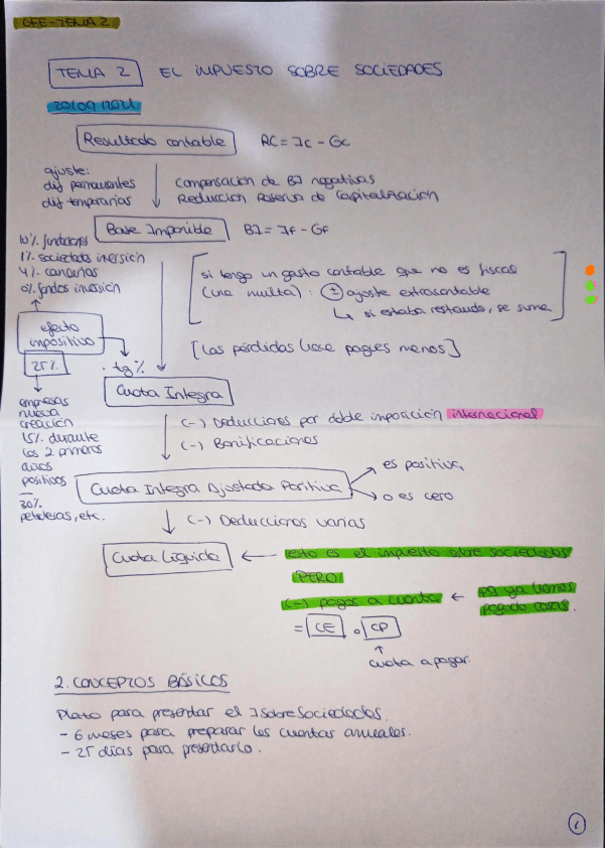 OFE-TEMA 2
TEMA 2 EL IMPUESTO SOBRE SOCIEDADES
20/09/2021
Resultado contable RC = Ic - Gc
ajuste:
dif permanentes
dif temporarias
Compensación de BI negativas
Reducción Reserva de Capitalización
Base Imponible BI = If - Gf
10% fundaciones
1% sociedades inversión
4% canarias
0% fondos inversión
si tengo un gasto contable que no es fiscal
(una multa): (±) ajuste extracontable
↳ si estaba restando, se suma
efecto
impositivo
25%
· tg %
[Las pérdidas hace pagues menos]
Cuota Integra
empresas
nueva
creación
15% durante
los 2 primeros
años
positivos
30%
petroleras, etc.
(-) Deducciones por doble imposición internacional
(-) Bonificaciones
Cuota Integra Ajustada Positiva
es positiva,
o es cero
(-) Deducciones varias
Cuota Líquida ← esto es el impuesto sobre sociedades
PERO
(-) pagos a cuenta ← pq ya hemos
pagado cosas.
= CE o CP
↑
cuota a pagar.
2. CONCEPTOS BÁSICOS
Plazo para presentar el I sobre Sociedades.
- 6 meses para preparar las cuentas anuales.
- 25 días para presentarlo.
1